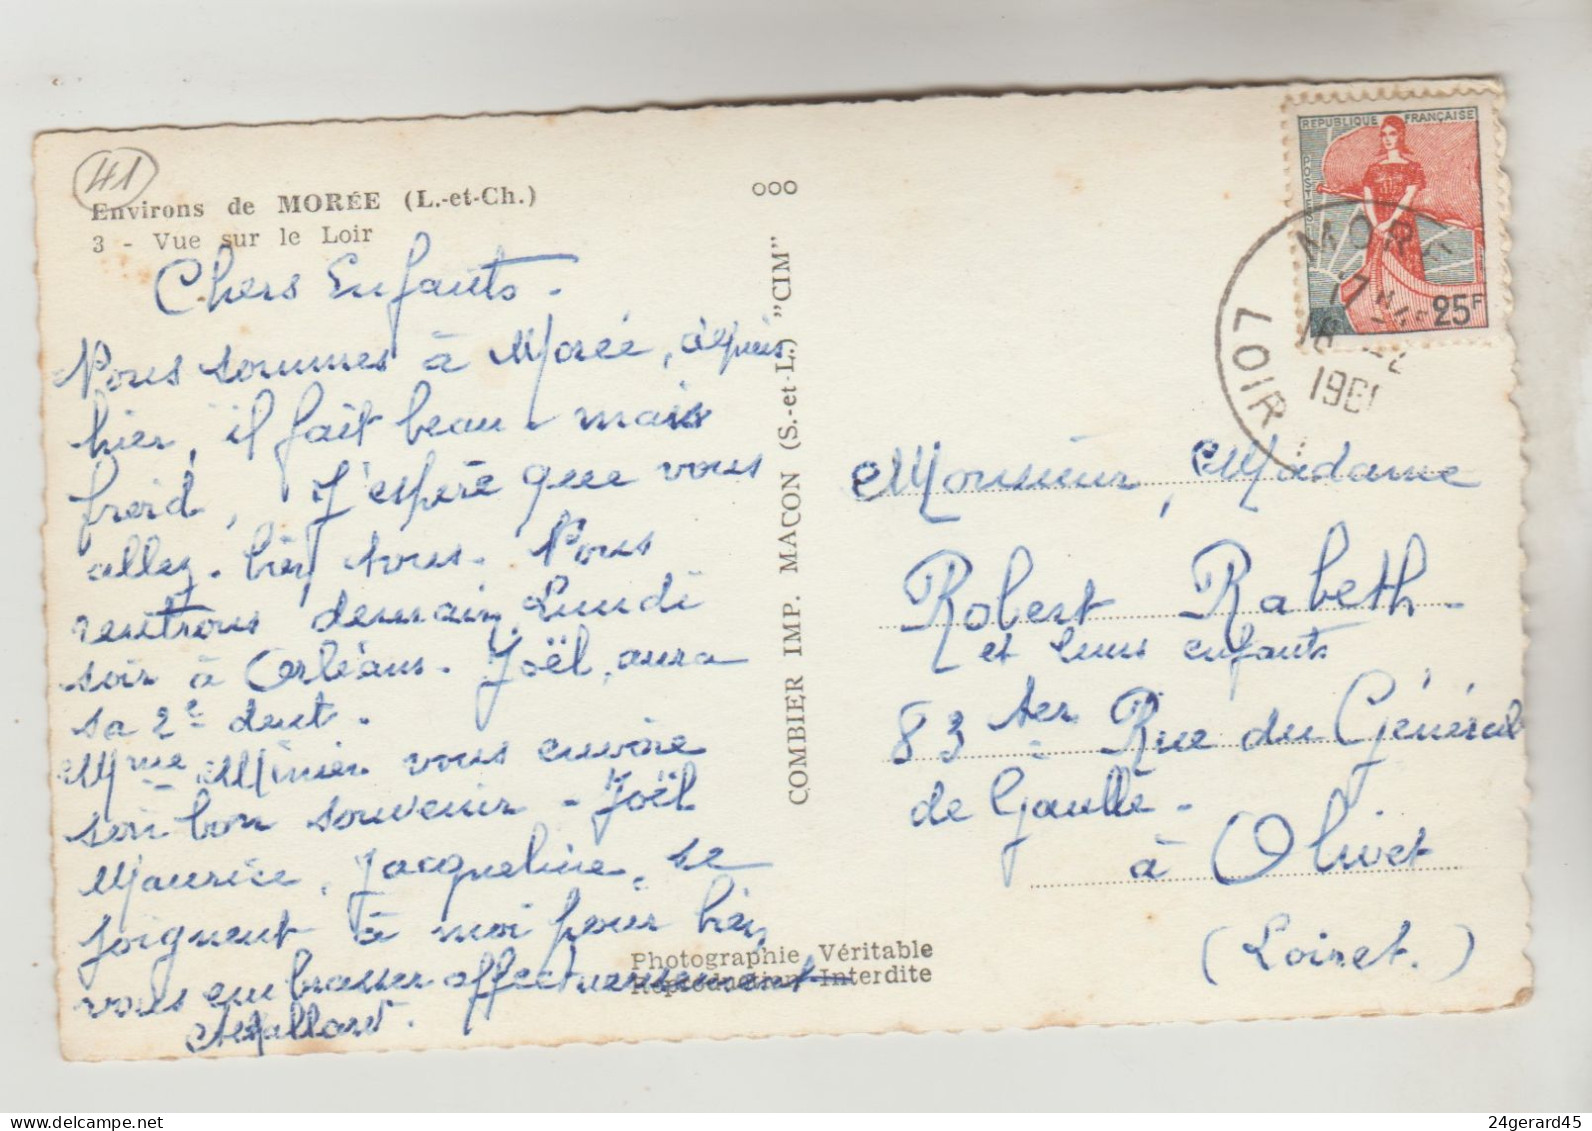 41
Environs de MORÉE (L.-et-Ch.)
3 - Vue sur le Loir
Chers Enfants -
Nous sommes à Morée, depuis
hier, il fait beau mais
froid, J'espère que vous
allez bien tous. Nous
rentrons demain Lundi
soir à Orléans. Joël, aura
sa 2e dent.
Mme Minier vous envoie
son bon souvenir - Joël
Maurice, Jacqueline, se
joignent à moi pour bien
vous embrasser affectueusement
ooo
COMBIER IMP. MACON (S.-et-L.) "CIM"
Photographie Véritable
Reproduction Interdite
REPUBLIQUE FRANÇAISE
POSTES
25F
MOREE
17
1961
LOIR
Monsieur, Madame
Robert Rabeth -
et leurs enfants
83 ter Rue du Général
de Gaulle -
à Olivet
(Loiret.)
24gerard45